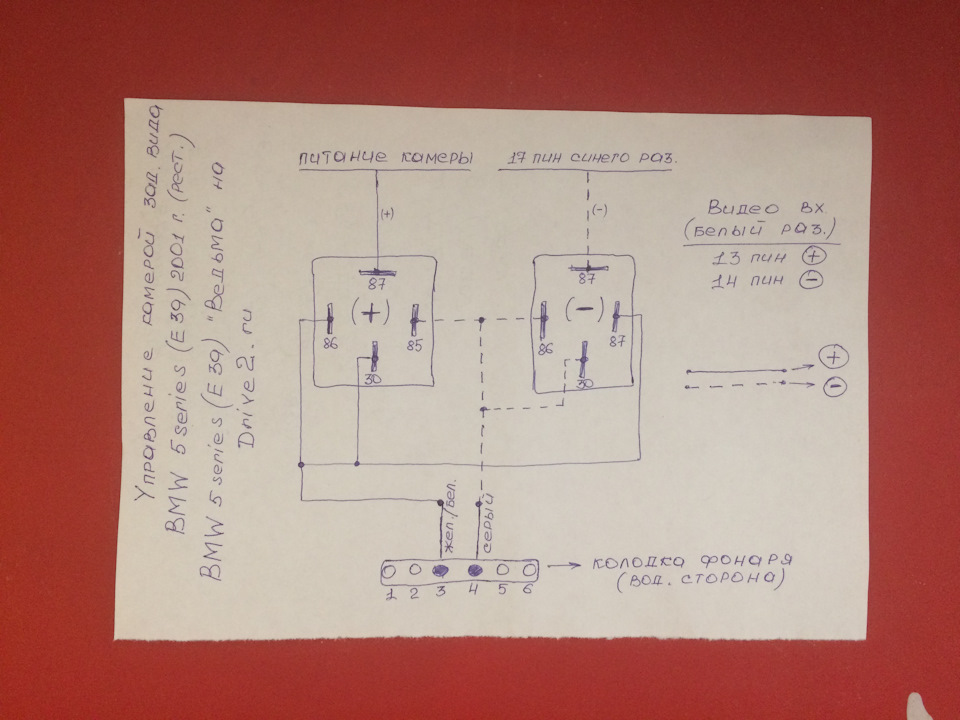 Управление камерой зад. вида
BMW 5 series (E 39) 2001 г. (рест.)
BMW 5 series (E 39) "Ведьма" на
Drive2.ru
питание камеры
17 пин синего раз.
(+)
(-)
87
(+)
86
85
30
87
(-)
86
87
30
Видео вх
(белый раз.)
13 пин +
14 пин -
+
-
жел./бел.
серый
1 2 3 4 5 6
колодка фонаря
(вод. сторона)